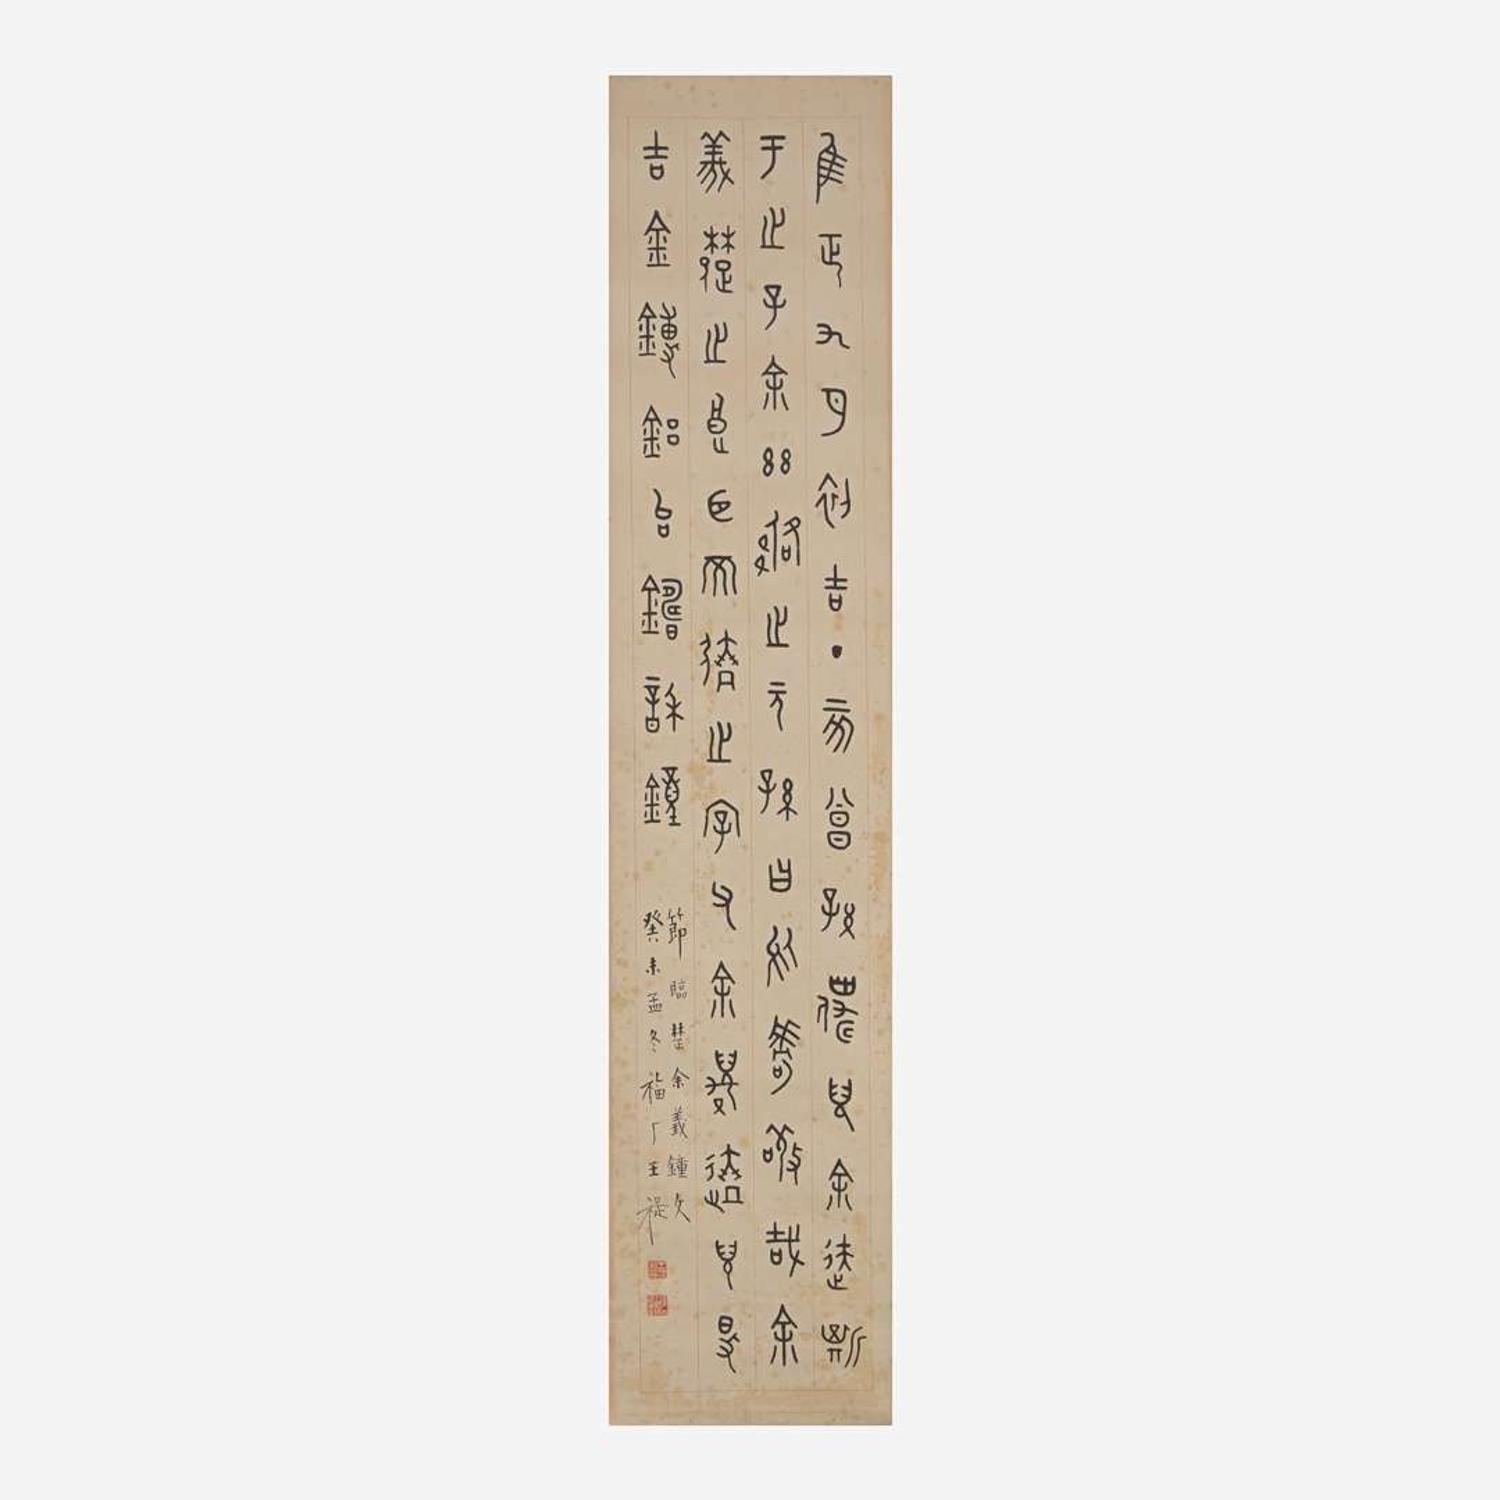 隹正九月初吉丁亥曾孫僕兒余迭斯
于之子余茲佫之元孫曰於嘑敬哉余
義楚之良臣而逨之字父余贎逨兒得
吉金鎛鋁台鑄訴鐘
節臨楚余義鐘文
癸未孟冬福厂王禔